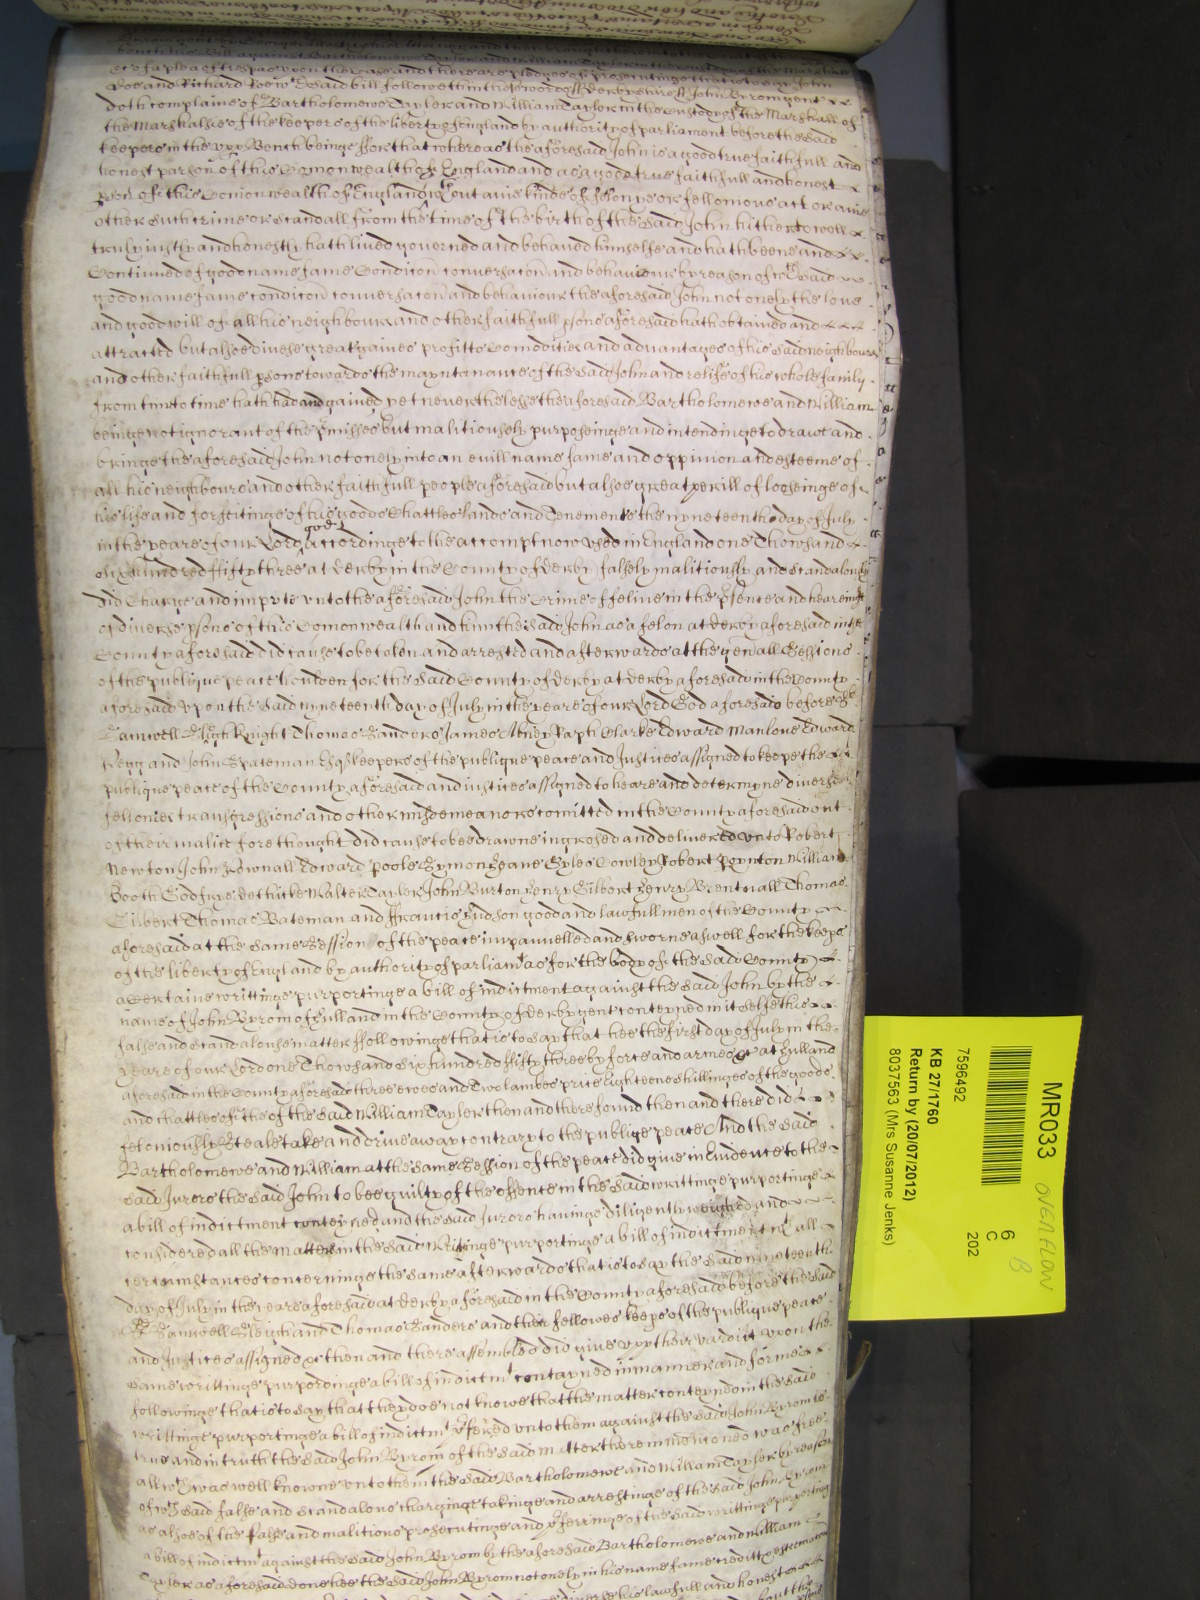 of a plea of trespas upon the case and there are pledges of prosecutinge that is to say John
Doe and Richard Roe wch said bill followeth in these words ss Derbyshire ss John Byrom gent
doth complaine of Bartholomewe Tayler and William Tayler in the custody of the Marshall of
the Marshalsie of the keepers of the liberty of England by authority of parliament before the said
keepers in the upper Bench beinge ffor that whereas the aforesaid John is a good true faithfull and
honest person of this Comonwealth of England and as a good true faithfull and honest
pson of this Comonwealth of England wthout anie kinde of felony or fellonious act or anie
other such crime or scandall from the time of the birth of the said John hitherto well
truly justly and honestly hath lived governed and behaved himselfe and hath beene and
Continued of good name fame Condicon conversacon and behaviour by reason of wch said
good name fame condicon conversacon and behaviour the aforesaid John not onely the love
and good will of all his neighbours and other faithfull psons aforesaid hath obtained and
attracted but alsoe divese great gaines profitts Comodities and advantages of his said neighbours
and other faithfull psons towards the mayntanance of the said John and reliefe of his whole family
from time to time hath had and gained yet neverthelesse the aforesaid Bartholomewe and William
beinge not ignorant of the pmisses but malitiously purposeinge and intendinge to drawe and
bringe the aforesaid John not onely into an evill name fame and oppinion and esteeme of
all his neighbours and other faithfull people aforesaid but alsoe great perill of looseinge of
his life and forfeitinge of his goods Chattles lands and Tenements the nyneteenth day of July
in the yeare of our Lord god accordinge to the accompt now used in England one Thowsand
six hundred ffifty three at Derby in the County of Derby falsely malitiously and scandalously
did Charge and impute unto the aforesaid John the Crime of felonie in the psence and heareinge
of diverse psons of this Comonwealth and him the said John as a felon at Derby aforesaid in the
County aforesaid did cause to be taken and arrested and afterwards at the genall Sessions
of the publique peace houlden for the said County of Derby at Derby aforesaid in the County
aforesaid upon the said nyneteenth day of July in the yeare of our Lord God aforesaid before Sr
Samwell Sleigh Knight Thomas Sanders James Abney Raph Clarke Edward Manlove Edward
Pegg and John Spateman Esqs keepers of the publique peace and Justices assigned to keepe the
publique peace of the County aforesaid and justices assigned to heare and determyne diverse
fellonies transgressions and other misdemeanors comitted in the County aforesaid out
of their malice fore thought did cause to bee drawne ingrosed and delivered unto Robert
Newton John Rownall Edward Poole Symon Heane Gyles Cowley Robert Poynton William
Booth Godfrye Dethicke Walter Tayler John Burton Henry Gilbert Henry Brentnall Thomas
Gilbert Thomas Bateman and ffrancis Hudson good and lawfull men of the County
aforesaid at the same Session of the peace impannelled and sworne aswell for the keeps
of the liberty of England by authority of parliamt as for the body of the said County
a Certaine writtinge purportinge a bill of indictment against the said John by the
name of John Byrom of Hulland in the County of Derby gent conteyned in it selfe this
false and scandalouse matter ffollowinge that is to say that hee the first day of July in the
yeare of our Lord one Thowsand six hundred ffifty three by force and armes &c at Hulland
aforesaid in the County aforesaid three ewes and two lambes price Eighteene shillinges of the goods
and chattles of the of the said William Tayler then and there found then and there did
feloniously Steale take and drive away contrary to the publiqe peace And the said
Bartholomewe and William at the same Session of the peace did give in Evidence to the
said Jurors the said John to bee guilty of the offence in the said writtinge purportinge
a bill of indictment conteyned and the said Jurors havinge diligently weighed and
considered all the matters in the said writtinge purportinge a bill of indictment and all
circumstances concerninge the same afterwards that is to say the said nineteenth
day of July in the yeare aforesaid at Derby aforesaid in the County aforesaid before the said
Sr Samwell Sleigh and Thomas Sanders and their fellowes keeps of the publique peace
and Justices assigned &c then and there assembled did give upp their vardict upon the
same writtinge purpordinge a bill of indictmt contayned in manner and forme
followinge that is to say that they doe not knowe that the matter conteynd in the said
writtinge purportinge a bill of indictmt pfered unto them against the said John Byrom is
true and in truth the said John Byrom of the said matter therein menconed was free
all wch was well knowne unto them the said Bartholomewe and William Tayler by reason
of wch said false and scandalous charginge takinge and arrestinge of the said John Byrom
as alsoe of the false and malitious prosecutinge and pferringe of the said writtinge purporting
a bill of indictmt against the said John Byrom by the aforesaid Bartholomewe and William
Tayler as aforesaid done hee the said John Byrom not onely in his name fame creditt &
his lawfull and honest
MR033
7596492
KB 27/1760
Return by (20/07/2012)
8037563 (Mrs Susanne Jenks)
6
C
202
OVERFLOW
B